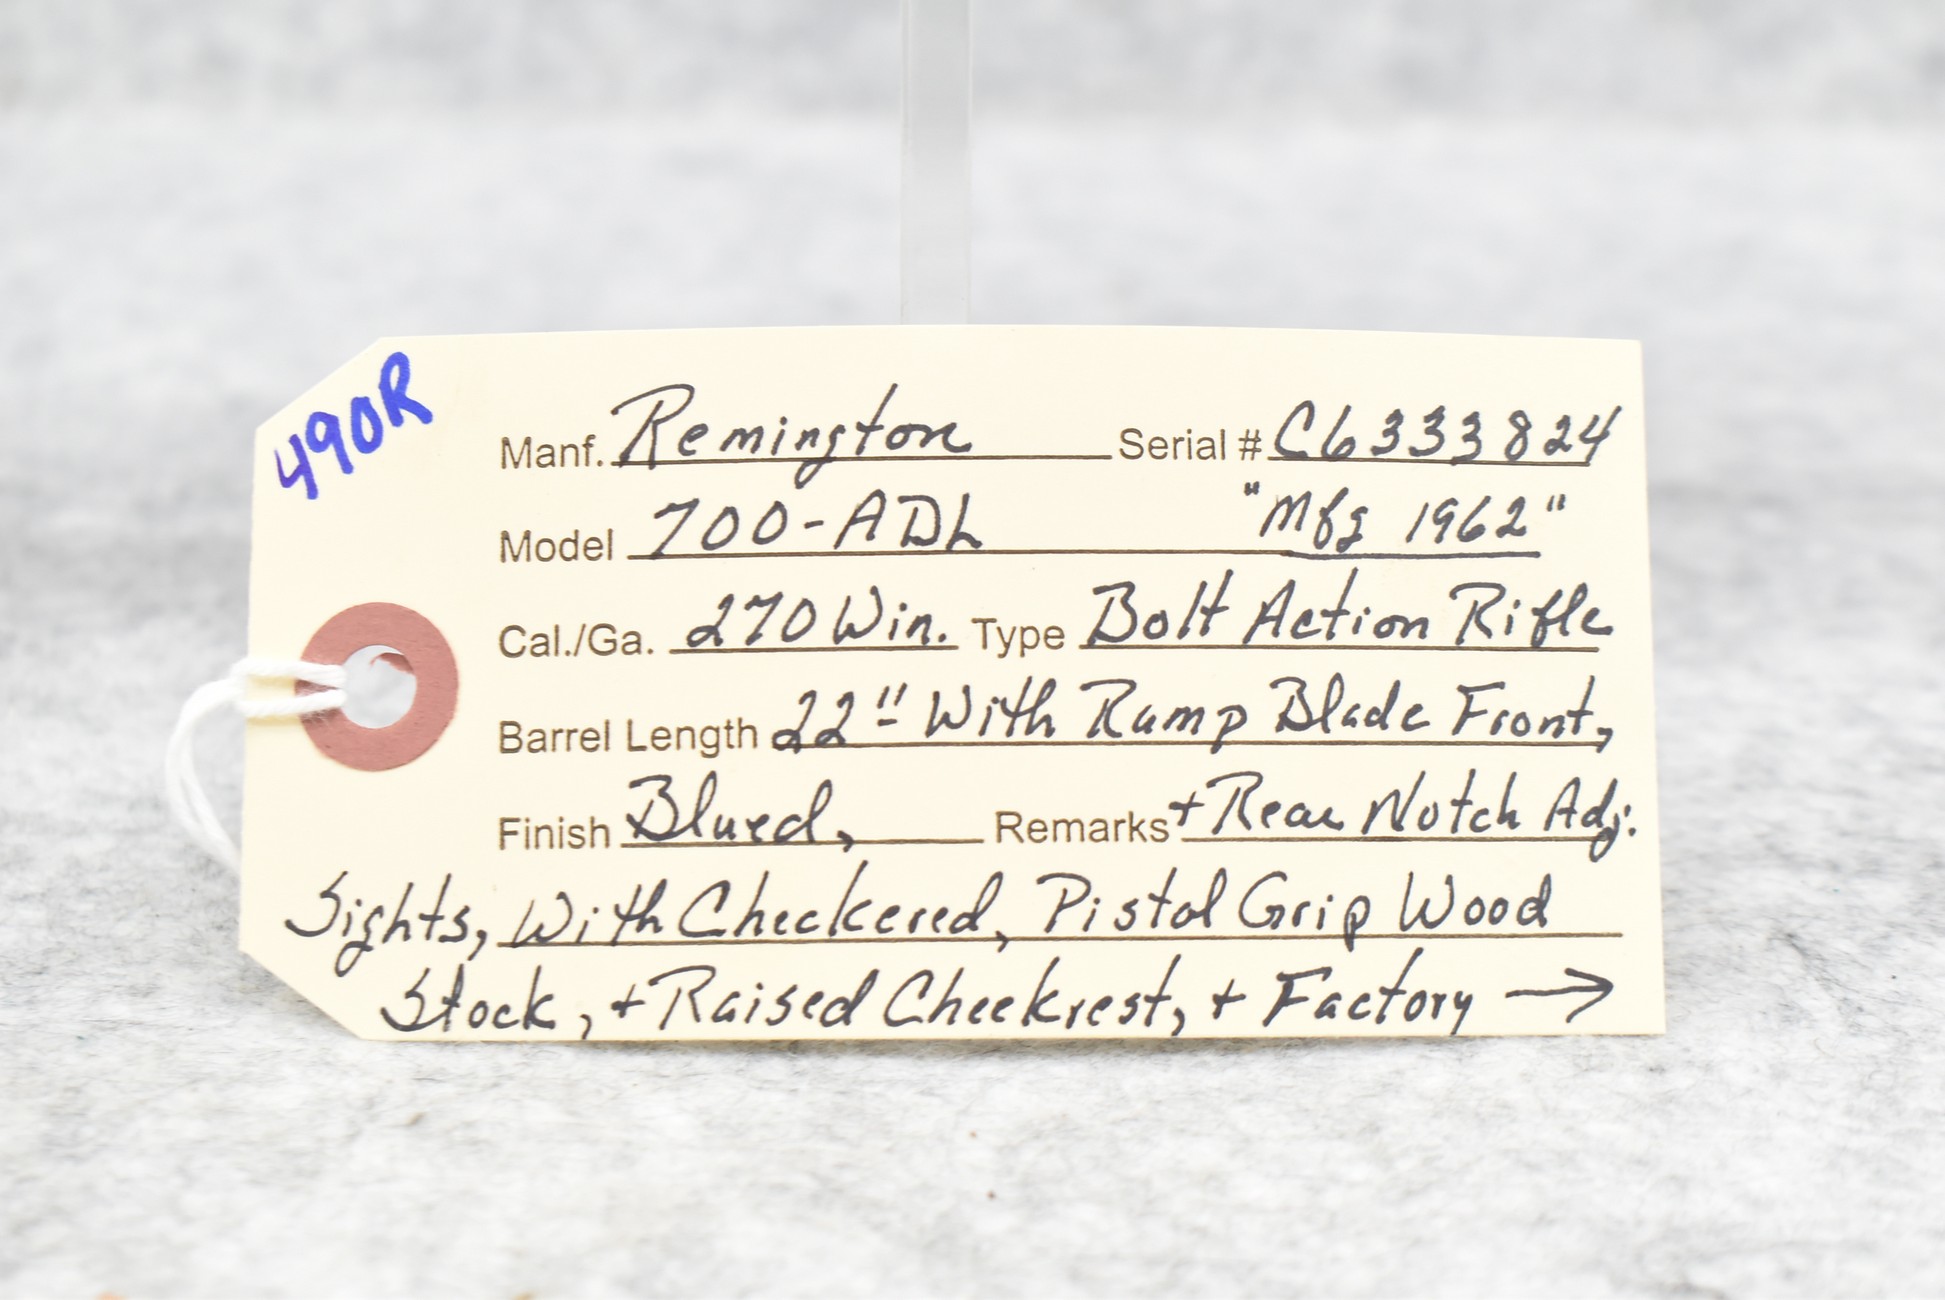 490R
Manf. Remington Serial # C6333824
Model 700-ADL "Mfg 1962"
Cal./Ga. 270 Win. Type Bolt Action Rifle
Barrel Length 22" With Ramp Blade Front,
Finish Blued, Remarks + Rear Notch Adj.
Sights, With Checkered, Pistol Grip Wood
Stock, + Raised Cheekrest, + Factory →